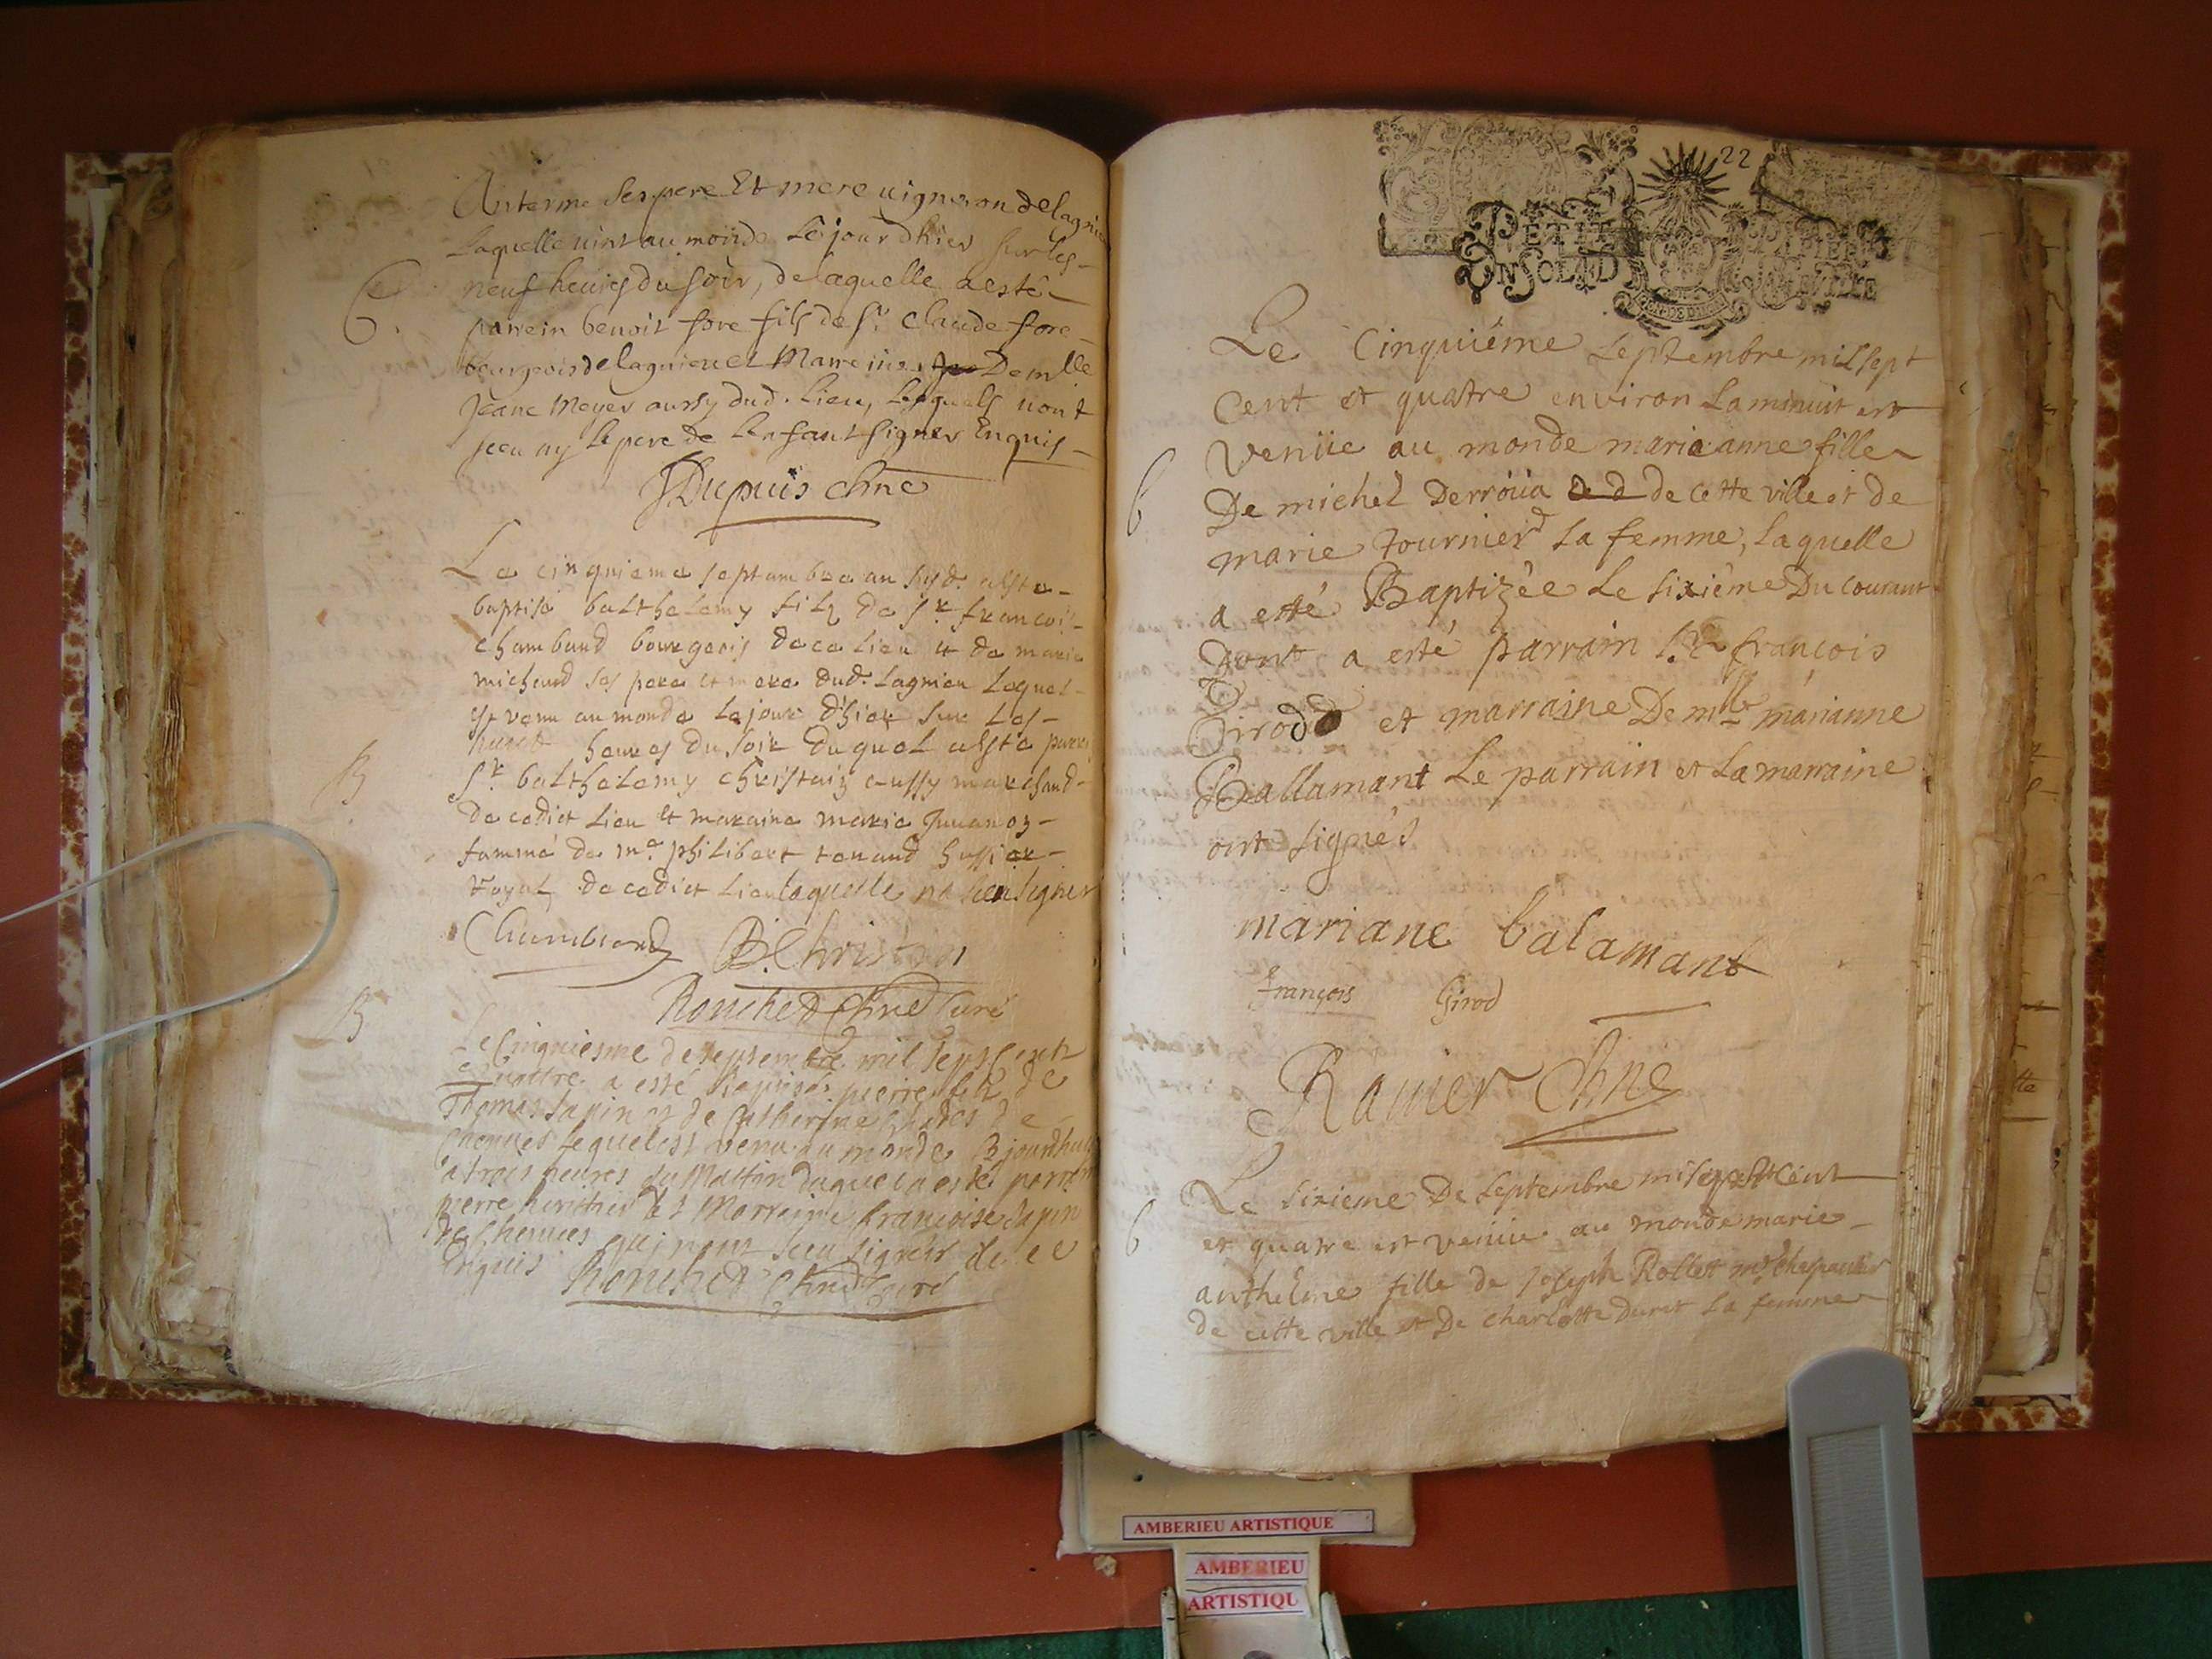 Anterme Ses pere Et mere uigneron de lagnieu
Laquelle uint au monde Le jour dhier sur les
neuf heures du soir, de laquelle a esté
B.
parrein benoit fore fils de Sr. Claude fore
bourgeois de lagnieu et Marreine Demlle
Jeane Meyer aussy dud. Lieu, Lesquels nont
sceu ny le pere de lenfant signer Enquis
JDupuis chne
Le cinquieme septambre an susd. a esté
baptisé balthelemy filz de Sr. francois
chambaud bourgeois de ce lieu et de marie
michaud ses pere et mere dud. Lagnieu Lequel
est venu au monde Le jour d'hier sur Les
heures du soir duquel a esté parrin
B
Sr. balthelemy christain aussy marchand
de cedict Lieu et maraine marie
famme de me. philibert tenand hussier
Royal de cedict Lieu laquelle na sceu signer
Chambaud B. Christain
Rouched Chne Curé
B
Le Cinquiesme de septembre mil sept Cent
et quattre a esté baptisé pierre filz de
Thomas Sapin et de Catherine de
Chesnes lequel est venu au monde aujourdhuy
a trois heures du Mattin duquel a esté parrein
pierre et Marreine françoise Sapin
de Chesnes qui nont sceu signer de ce
enquis Rouched Chne Curé
22
PETIT PAPIER
UN SOL LAD FEUILLE
Le Cinquiéme Septembre mil sept
Cent et quatre environ La minuit est
Venüe au monde marie anne fille
b
De michel Derroüa de cette ville et de
marie tournier sa femme, Laquelle
a esté Baptizée Le Sixiéme Du courant
Dont a esté parrain Sr. françois
Girod et marraine De mlle marianne
Ballamant Le parrain et La marraine
ont signés
mariane balamant
françois Girod
Ramier Chne
Le Sixieme De Septembre mil sept Cent
b
et quatre est venüe au monde marie
anthelme fille de Joseph Rollet mr. charpantier
de cette ville et De charlotte Duret sa femme
AMBERIEU ARTISTIQUE
AMBERIEU
ARTISTIQU